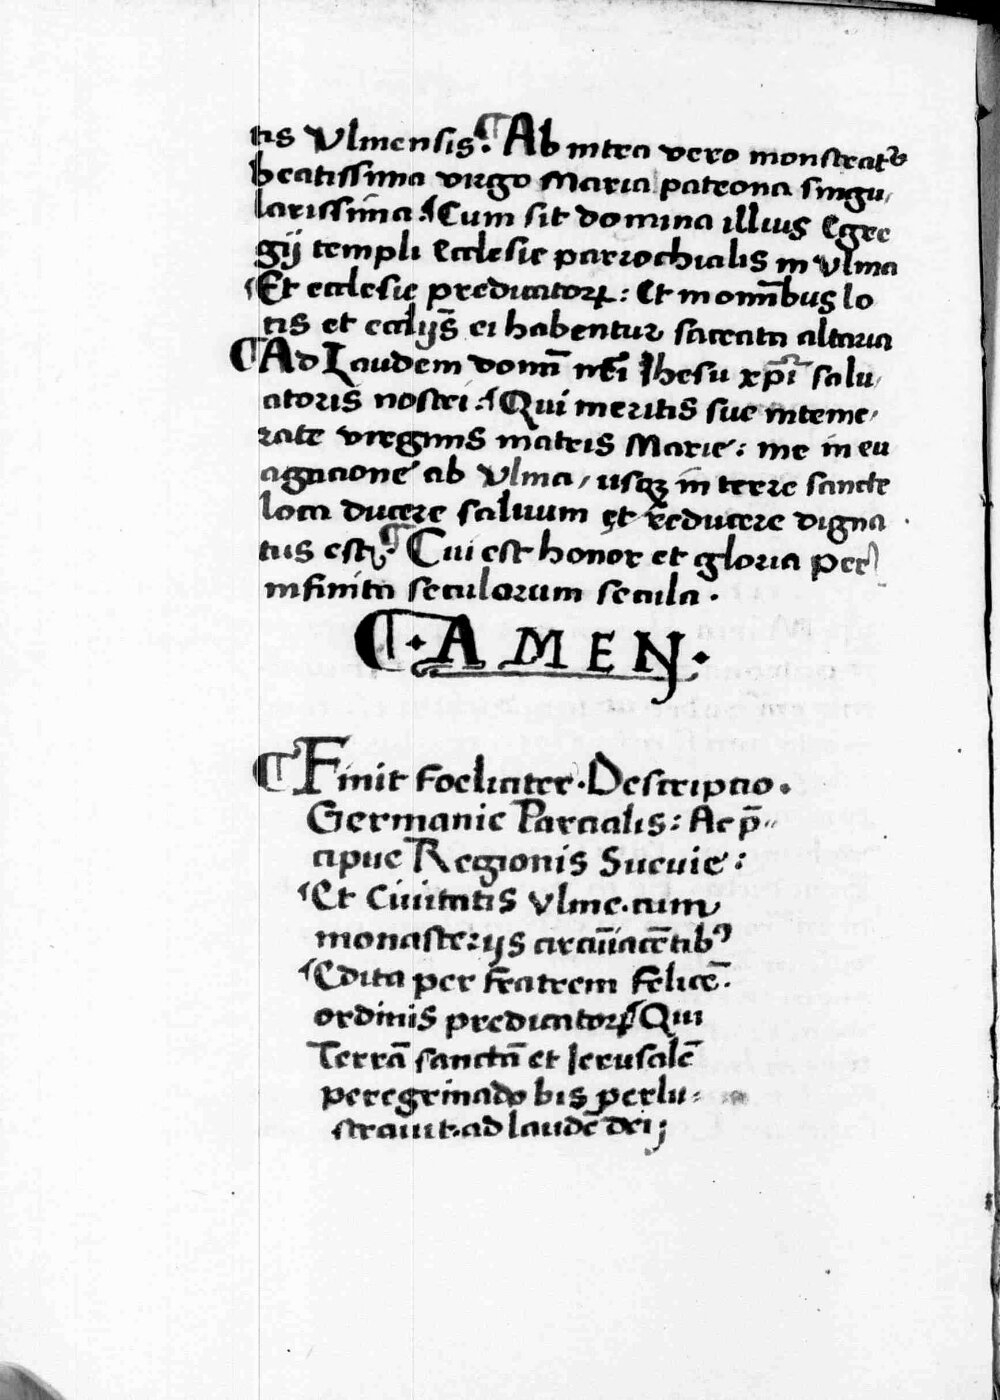 tis Vlmensis. ¶ Ab intra vero monstratꝰ
beatissima virgo Maria patrona singu,
larissima. Cum sit domina illius Egre
gij templi Ecclesie parrochialis in Vlma
Et ecclesie predicatoꝝ: Et in omībus lo
tis et ecclijs̄ ei habentur sacrata altaria
¶ Ad Laudem domī nr̄i Jhesu xp̄i salu,
atoris nostri: Qui meritis sue inteme,
rate virginis matris Marie: me in eu
agacione ab Vlma, usqꝫ in terre sancte
loca ducere saluum et reducere digna
tus est. ¶ Cui est honor et gloria per
infinita seculorum secula.
¶ . AMEN.
¶ Finit foeliciter. Descriptio.
Germanie Parcialis: Ac p̄
cipue Regionis Sueuie:
Et Ciuitatis Vlme. cum
monasterijs circūiacētibꝰ
Edita per fratrem Felicē.
ordinis predicatoꝝ Qui
Terrā sanctā et Jerusalē
peregrinādo bis perlu:
strauit. ad laudē dei;